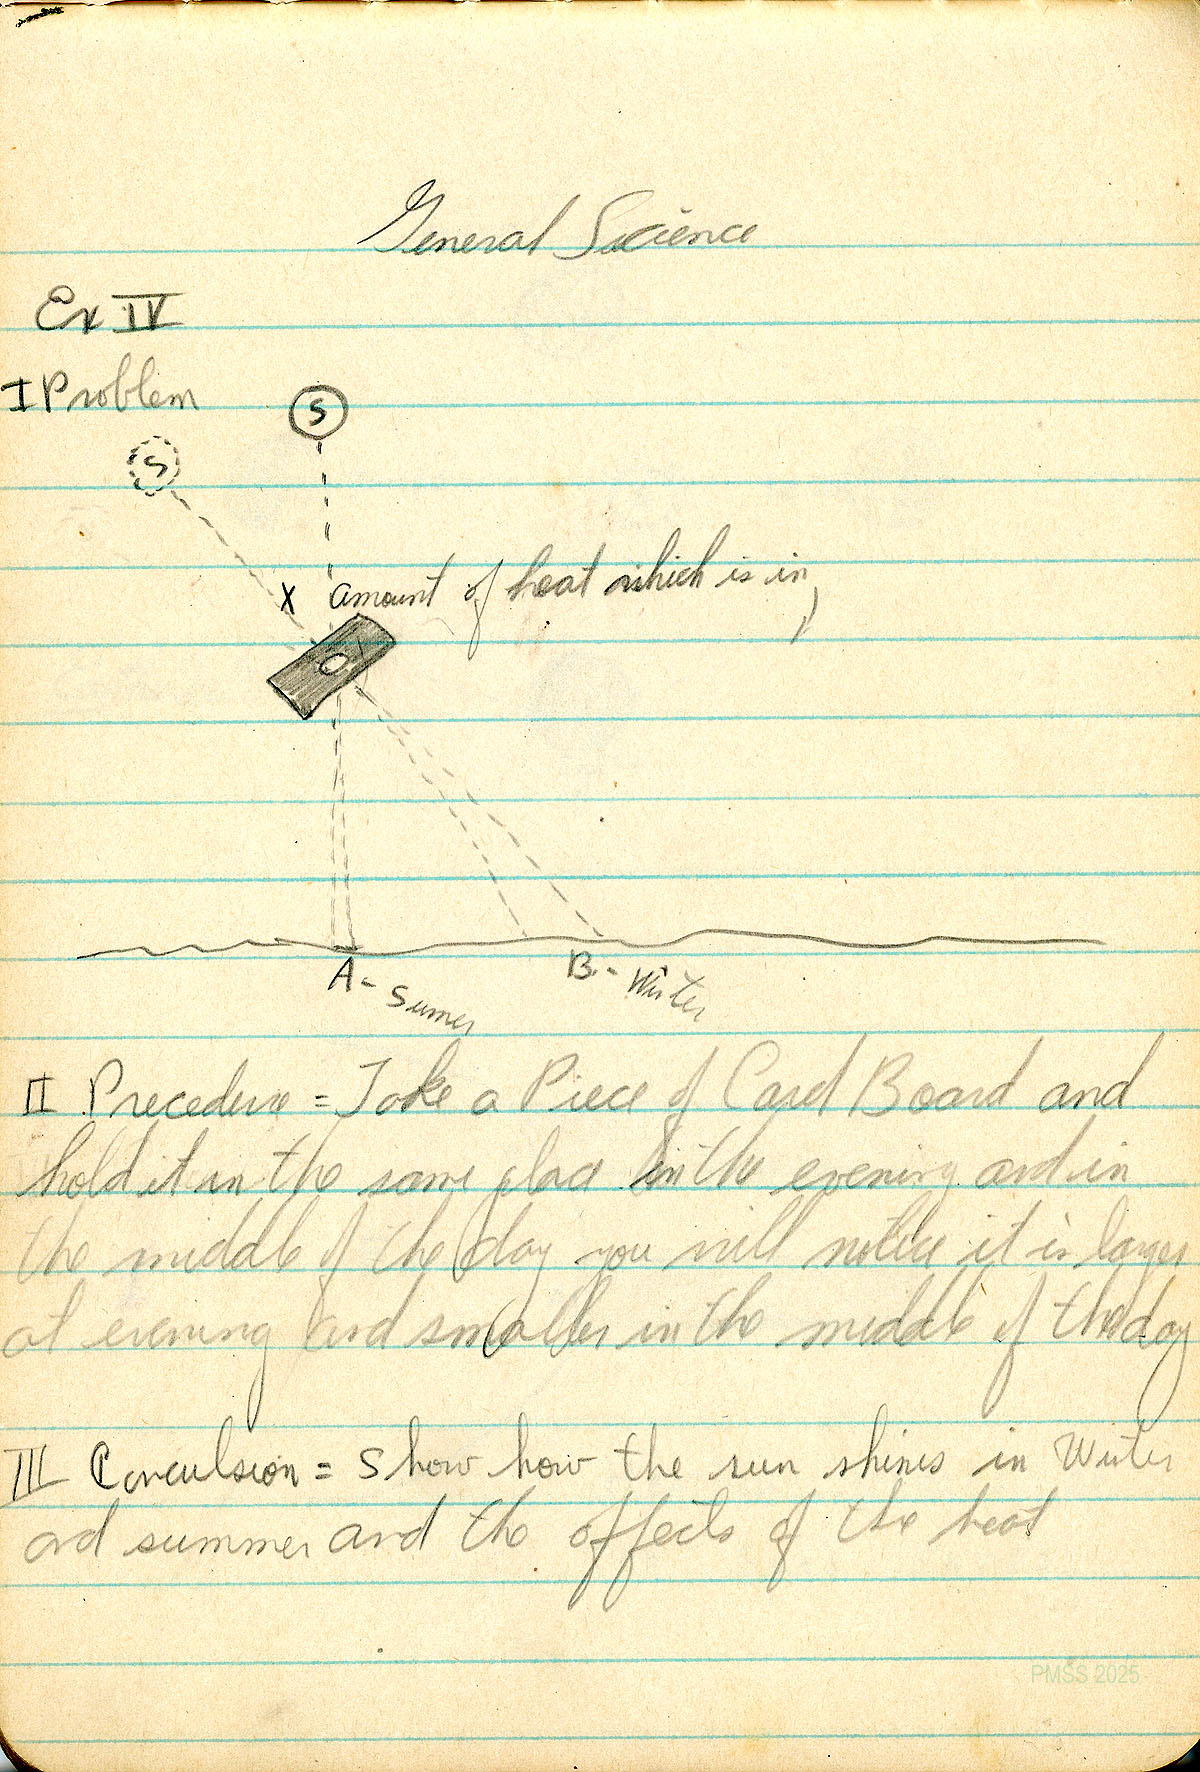 General Sucience
Ex IV
I Problem
S
S
X amount of heat which is in
A - Sumer
B - Winter
II Precedure = Take a Piece of Card Board and
hold it in the same place in the evening and in
the middle of the day you will notice it is larger
at evening and smaller in the middle of the day
III Conculsion = Show how the sun shines in Winter
and summer and the offects of the heat
PMSS 2025